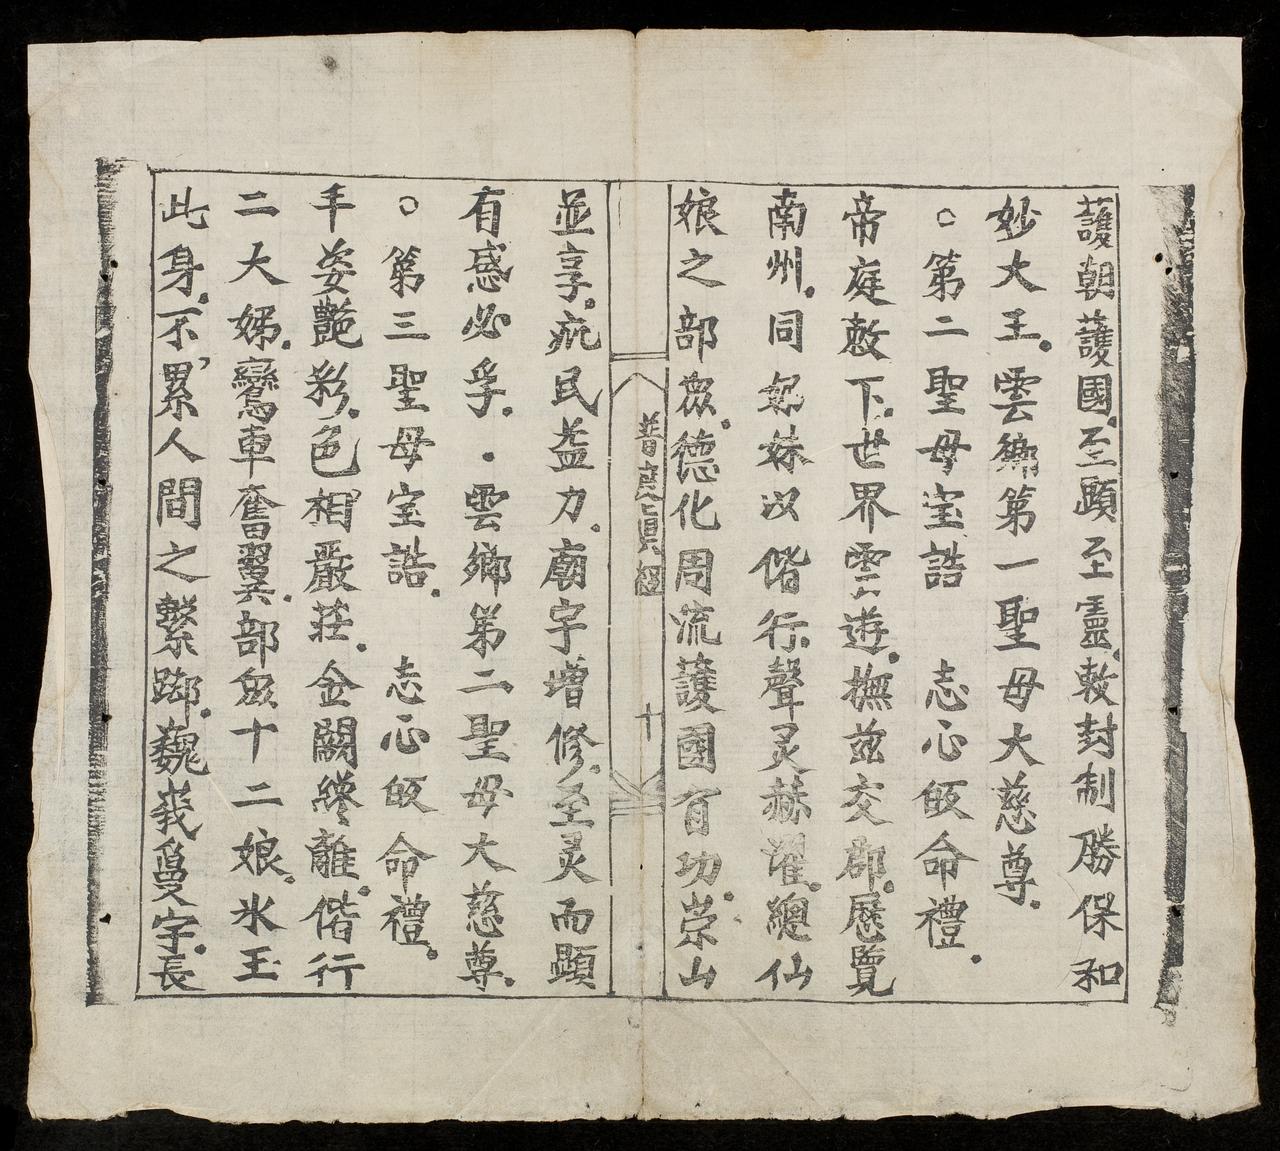 護朝護國。至顕至靈。敕封制勝保和
妙大王。雲鄉第一聖母大慈尊。
○第二聖母宝誥　志心皈命禮。
帝庭敕下。世界雲遊。撫茲交郡。歷覽
南州。同姊妹以偕行。聲灵赫濯。總仙
娘之部众。德化周流護國有功。崇山
普度真經
十
並享。庇民益力。廟宇增修。至灵而顕
有感必孚。雲鄉第二聖母大慈尊。
○第三聖母宝誥。　志心皈命禮。
手姿艷彩。色相嚴莊。金闕纔離。偕行
二大姊。鸞車奮翼。部众十二娘。氷玉
此身。不累人間之繫蹄。巍峩廟宇。長